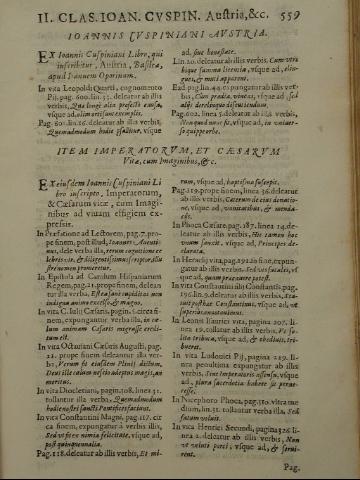 II. CLAS. IOAN. CVSPIN. Austria, &c. 559
IOANNIS CVSPINIANI AVSTRIA.
EX Ioannis Cuspiniani Libro, qui
inscribitur, Austria, Basileæ,
apud Ioannem Oporinum.
In vita Leopoldi Quarti, cognomento
Pij, pag. 600. lin. 31. deleatur ab illis
verbis, Qua longè alia profectò causa,
vsque ad, olim artissime exemplis.
Pag. 601. lin. 26. deleatur ab illis verbis,
Quemadmodum hodie psallitur, vsque
ad, siue honestate.
Lin. 20. deleatur ab illis verbis, Cum vtri
bique summa licentia, vsque ad,
&
Ead. pag. lin. 44. expungatur ab illis ver-
bis, Cùm pradia, vineas, vsque ad, sed
alijs derelinquo discutiendum.
Pag. 602. linea 5. deleatur ab illis verbis,
Non quod nunc sit, vsque ad, in vniuer-
so quippe orbe.
ITEM IMPERATORVM, ET CÆSARVM
Vitæ, cum Imaginibus, &c.
EX eiusdem Ioannis Cuspiniani Li
bro inscripto, Imperatorum,
& Cæsarum vitæ, cum Imagi-
nibus ad viuam effigiem ex-
pressis.
In Præfatione ad Lectorem, pag. 7. pro-
pe finem, post illud, Ioannis Auenti-
nus, dele verba illa,
lebris vir, & diligentissimus scripturæ illu
strium promeretur.
In Epistola ad Carolum Hispaniarum
Regem, pag. 21. propè finem, delean
tur illa verba, Etsi eiusmodi capitibus non
indigna animo excelso, & magno.
In vita C. Iulij Cæsaris, pagin. 6. circa fi-
nem, expungantur verba illa, in cæ-
lum animam Cæsaris migrasse credi-
tum est.
In vita Octauiani Cæsaris Augusti, pag.
22. propè finem deleantur illa ver-
ba, Verum si eiusdem Plinij dictum,
Deus ille cælum ius hos adeptus magis, an
meritus.
In vita Diocletiani, pagin. 108. linea 31.
tollantur illa verba, Quemadmodum
hodie nostri sancti Pontifices faciunt.
In vita Constantini Magni, pag. 117. cir
ca finem, expungantur à verbis illis,
Sed vt fit ex nimia felicitate, vsque ad,
post quinquennalia.
Pag. 118. deleatur ab illis verbis, Et mi-
rum, vsque ad, baptisma suscepit.
Pag. 119. prope finem, linea 36. deleatur
ab illis verbis, Cæterum de eius donatio-
ne, vsque ad, vanitatibus, & menda-
cijs.
In Phoca Cæsare pag. 187. linea 14. de-
leatur ab illis verbis, Ne tamen hac
vinum fuscit, vsque ad, Principes de-
clarata.
In Heraclij vita, pag. 191. in fine, expun-
gatur ab illis verbis, Sed vt fucales, vs
que ad, quam præ cauere potest.
In vita Constantini alij Constantis, pag.
196. linea 5. deleatur ab illis verbis, Sta-
tuit posthac Constantinus, vsque ad, ve
superioranotauimus.
In Leonis Isaurici vita, pagina 207. li-
nea 19. tollatur ab illis verbis, Vt so-
lita tributa, vsque ad, & obedituti, tri-
bueret.
In vita Ludouici Pij, pagina 229. li-
nea penultima expungatur ab illis
verbis, Siue Imperatoris assensu, vsque
ad, plura sacerdotia habere sit perue-
resse.
In Nicephoro Phoca, pag. 310. vltra me
dium, lin. 31. tollantur verba illa, Sed
factum voluit.
In vita Henrici Secundi, pagina 326. li-
nea 2. deleatur ab illis verbis, Non
vt voluit parci, vsque ad, & seruiu-
rent.
Pag.